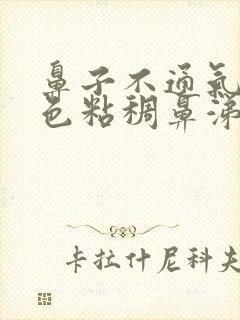 鼻子不通氣
色粘稠鼻涕
卡拉什尼科夫